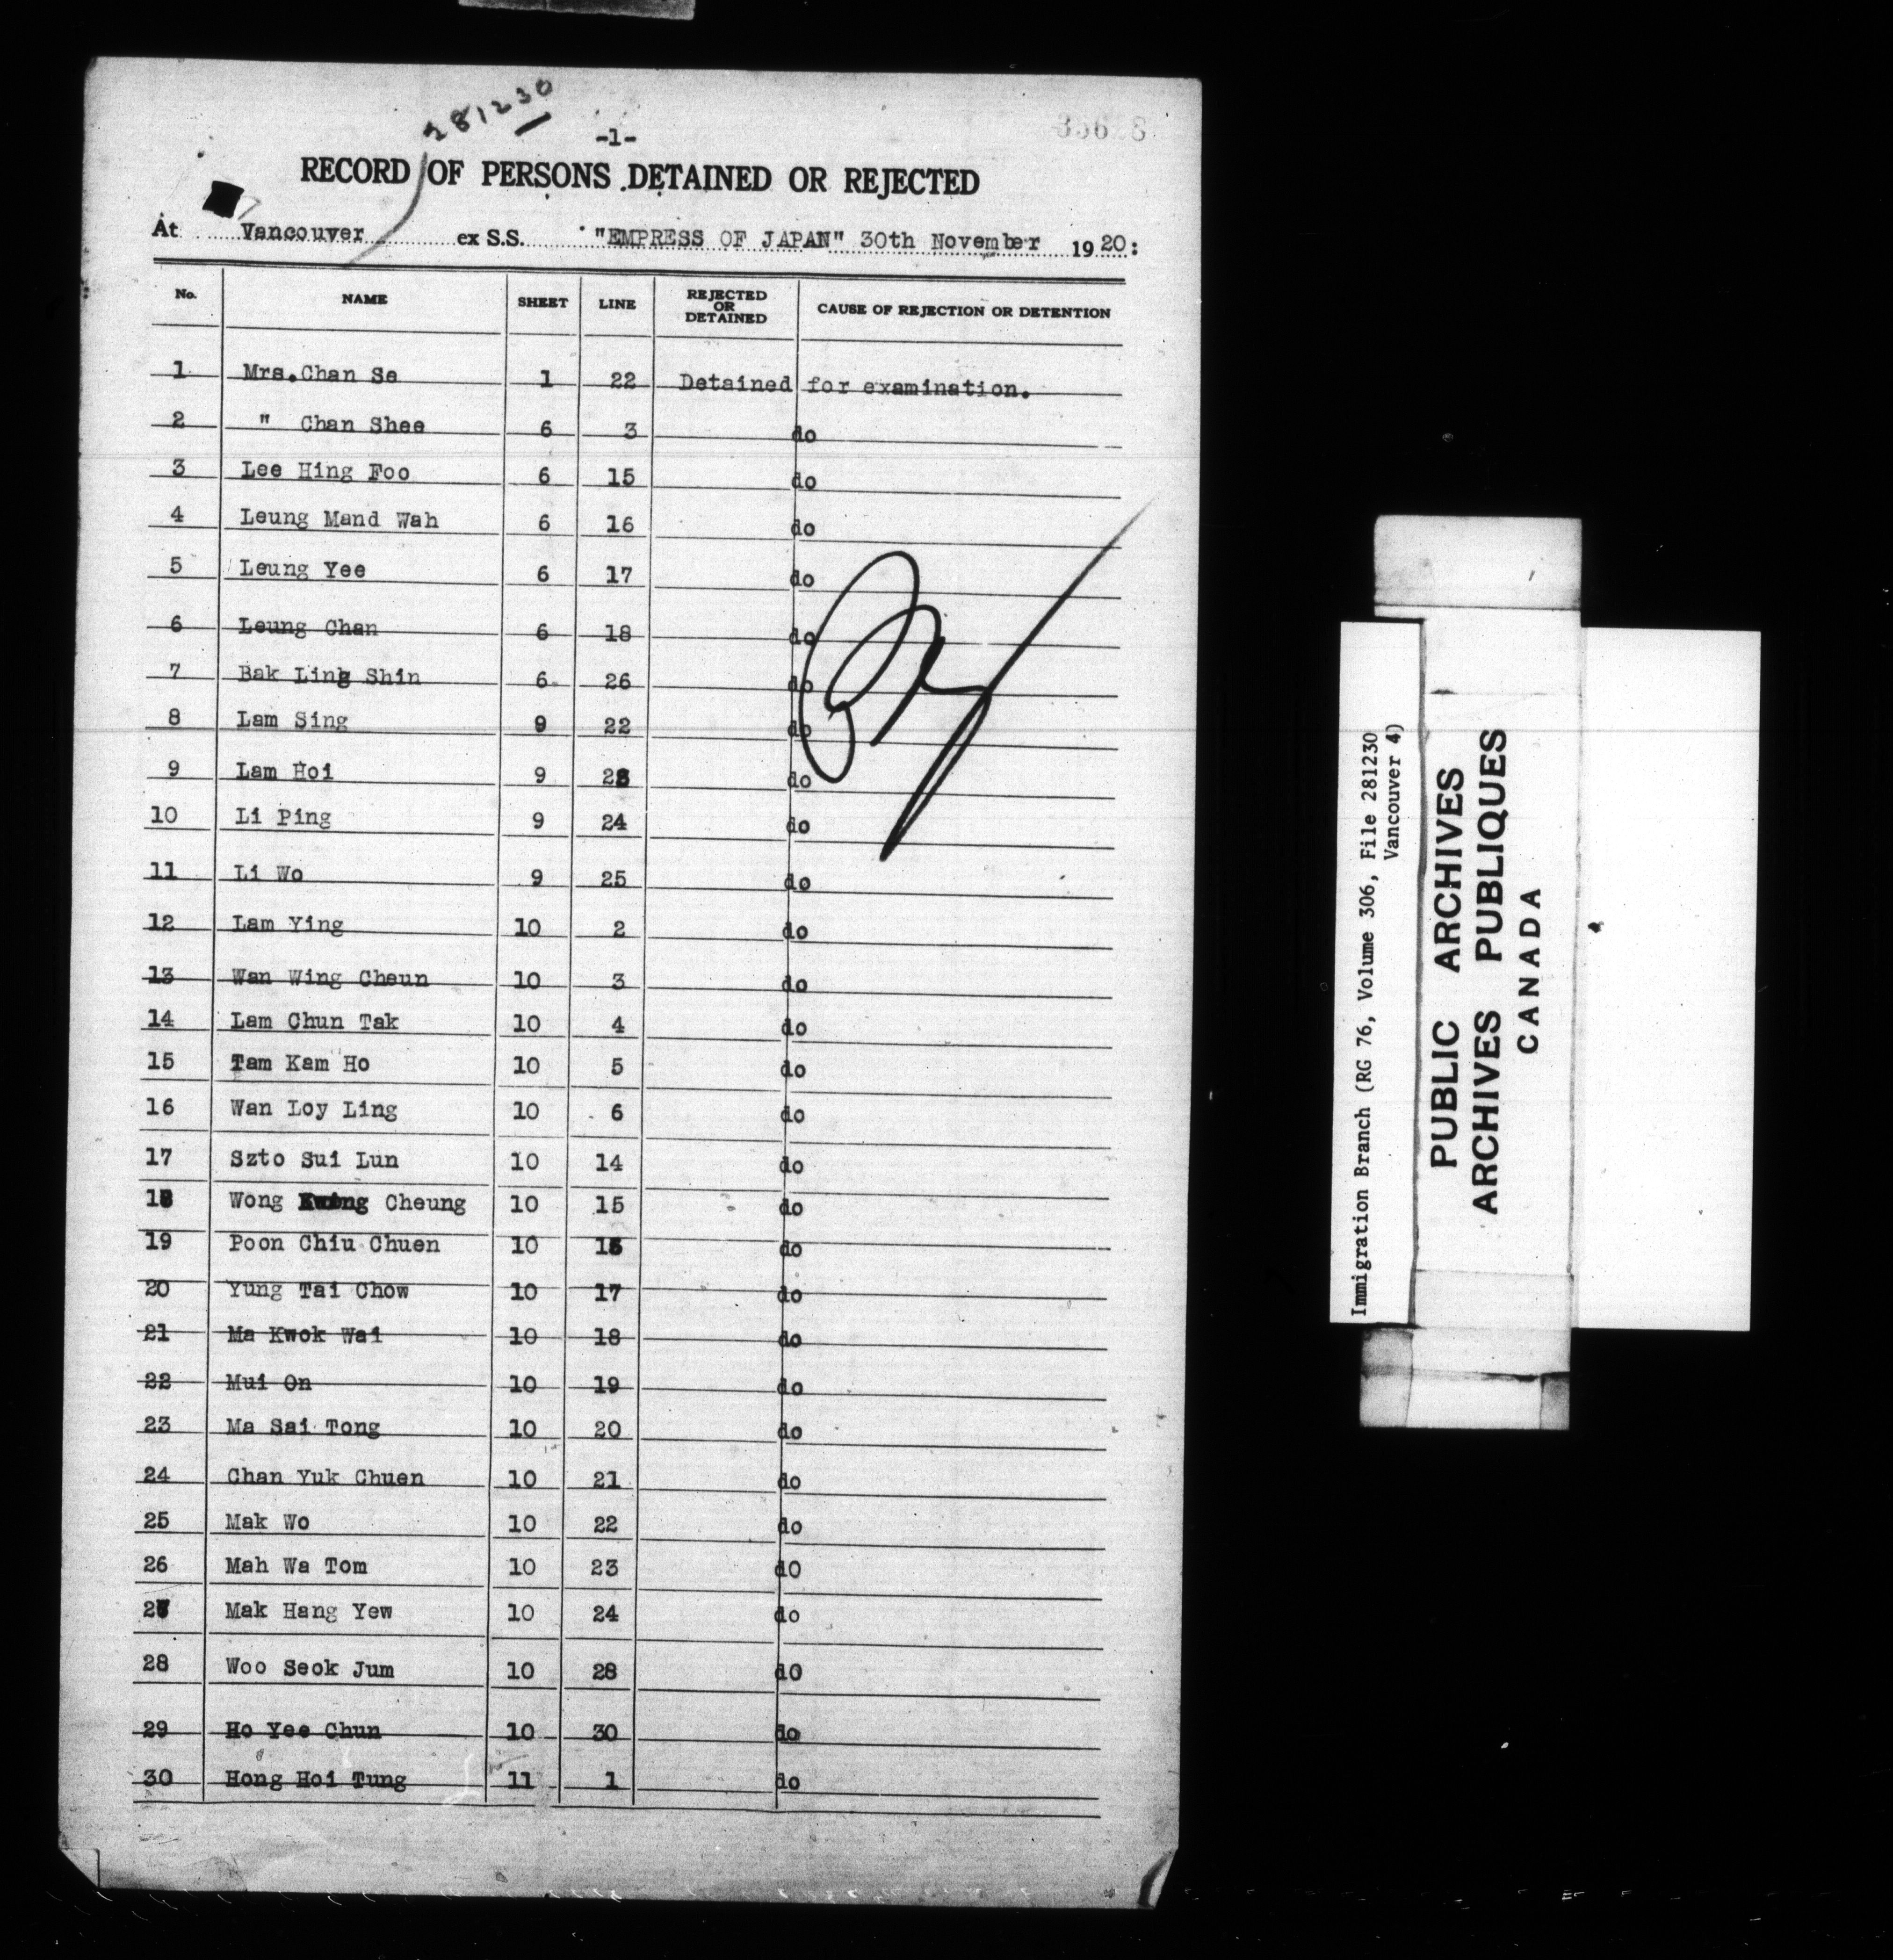 281230
-1-
RECORD OF PERSONS DETAINED OR REJECTED
At Vancouver ex S.S. "EMPRESS OF JAPAN" 30th November 1920:
No. NAME SHEET LINE REJECTED OR DETAINED CAUSE OF REJECTION OR DETENTION
1 Mrs. Chan Se 1 22 Detained for examination.
2 " Chan Shee 6 3 do
3 Lee Hing Foo 6 15 do
4 Leung Mand Wah 6 16 do
5 Leung Yee 6 17 do
6 Leung Chan 6 18 do
7 Bak Ling Shin 6 26 do
8 Lam Sing 9 22 do
9 Lam Hoi 9 23 do
10 Li Ping 9 24 do
11 Li Wo 9 25 do
12 Lam Ying 10 2 do
13 Wan Wing Cheun 10 3 do
14 Lam Chun Tak 10 4 do
15 Tam Kam Ho 10 5 do
16 Wan Loy Ling 10 6 do
17 Szto Sui Lun 10 14 do
18 Wong Cheung 10 15 do
19 Poon Chiu Chuen 10 16 do
20 Yung Tai Chow 10 17 do
21 Ma Kwok Wai 10 18 do
22 Mui On 10 19 do
23 Ma Sai Tong 10 20 do
24 Chan Yuk Chuen 10 21 do
25 Mak Wo 10 22 do
26 Mah Wa Tom 10 23 dO
27 Mak Hang Yew 10 24 do
28 Woo Seok Jum 10 28 dO
29 Ho Yee Chun 10 30 do
30 Hong Hoi Tung 11 1 do
Immigration Branch (RG 76, Volume 306, File 281230
Vancouver 4)
PUBLIC ARCHIVES
ARCHIVES PUBLIQUES
CANADA